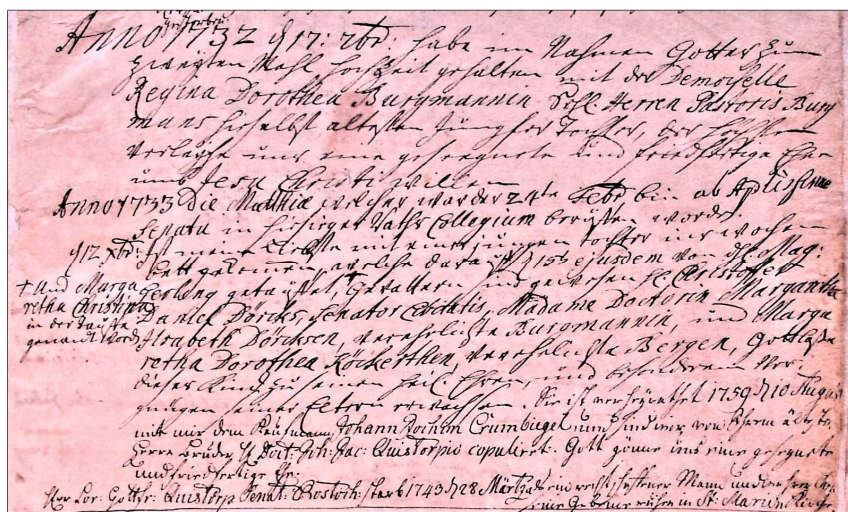 Anno 1732 d 17: xbr: habe im Nahmen Gottes zum
zweyten Mahl Hochzeit gehalten mit der Demoiselle
Regina Dorothea Burgmannin Sehl. Herren Pastoris Burg
mans hieselbst ältesten Jungfer Tochter, der Höchste
verleyhe uns eine gesegnete und friedfertige Ehe
umb Jesu Christi willen
Anno 1733 Die Matthiae welcher war der 24te Febr bin ab Amplissimo
Senatu in hiesiger Rahts Collegium beruffen worden.
d 12 xbr: Ist meine Liebste mit einer jungen Tochter ins Wochen
bett gekommen, welche darauf d 15t ejusdem von H. Mag:
Gerling getauffet, Gevattern sind gewesen H. Christoffer
† und Marga
retha Christina
in der Tauffe
genandt worden
Daniel Dörcks, Senator Civitatis, Madame Doctorin Margaretha
Elisabeth Dörcksen, verehelichte Burgmannin, und Marga
retha Dorothea Köckerthen, verehelichte Bergen, Gott lasse
dieses Kind zu seinen heil. Ehren, und besonderem Ver:
gnügen seiner Eltern erwachsen. Sie ist verheyrathet 1759 d 10 August
mit mir dem Kaufmann Johann Jochim Crumbiegel und sind wir von Ihrem ältesten
Herrn Bruder H Doct: Joh: Jac: Quistorpio copuliert. Gott gönne uns eine gesegnete
und friedfertige Ehe.
Herr Lor: Gottfr: Quistorp Senat: Rostoch: starb 1743 d 28 Märtz als ein rechtschaffener Mann und
seine Gebeine ruhen in St: Marien Kirche